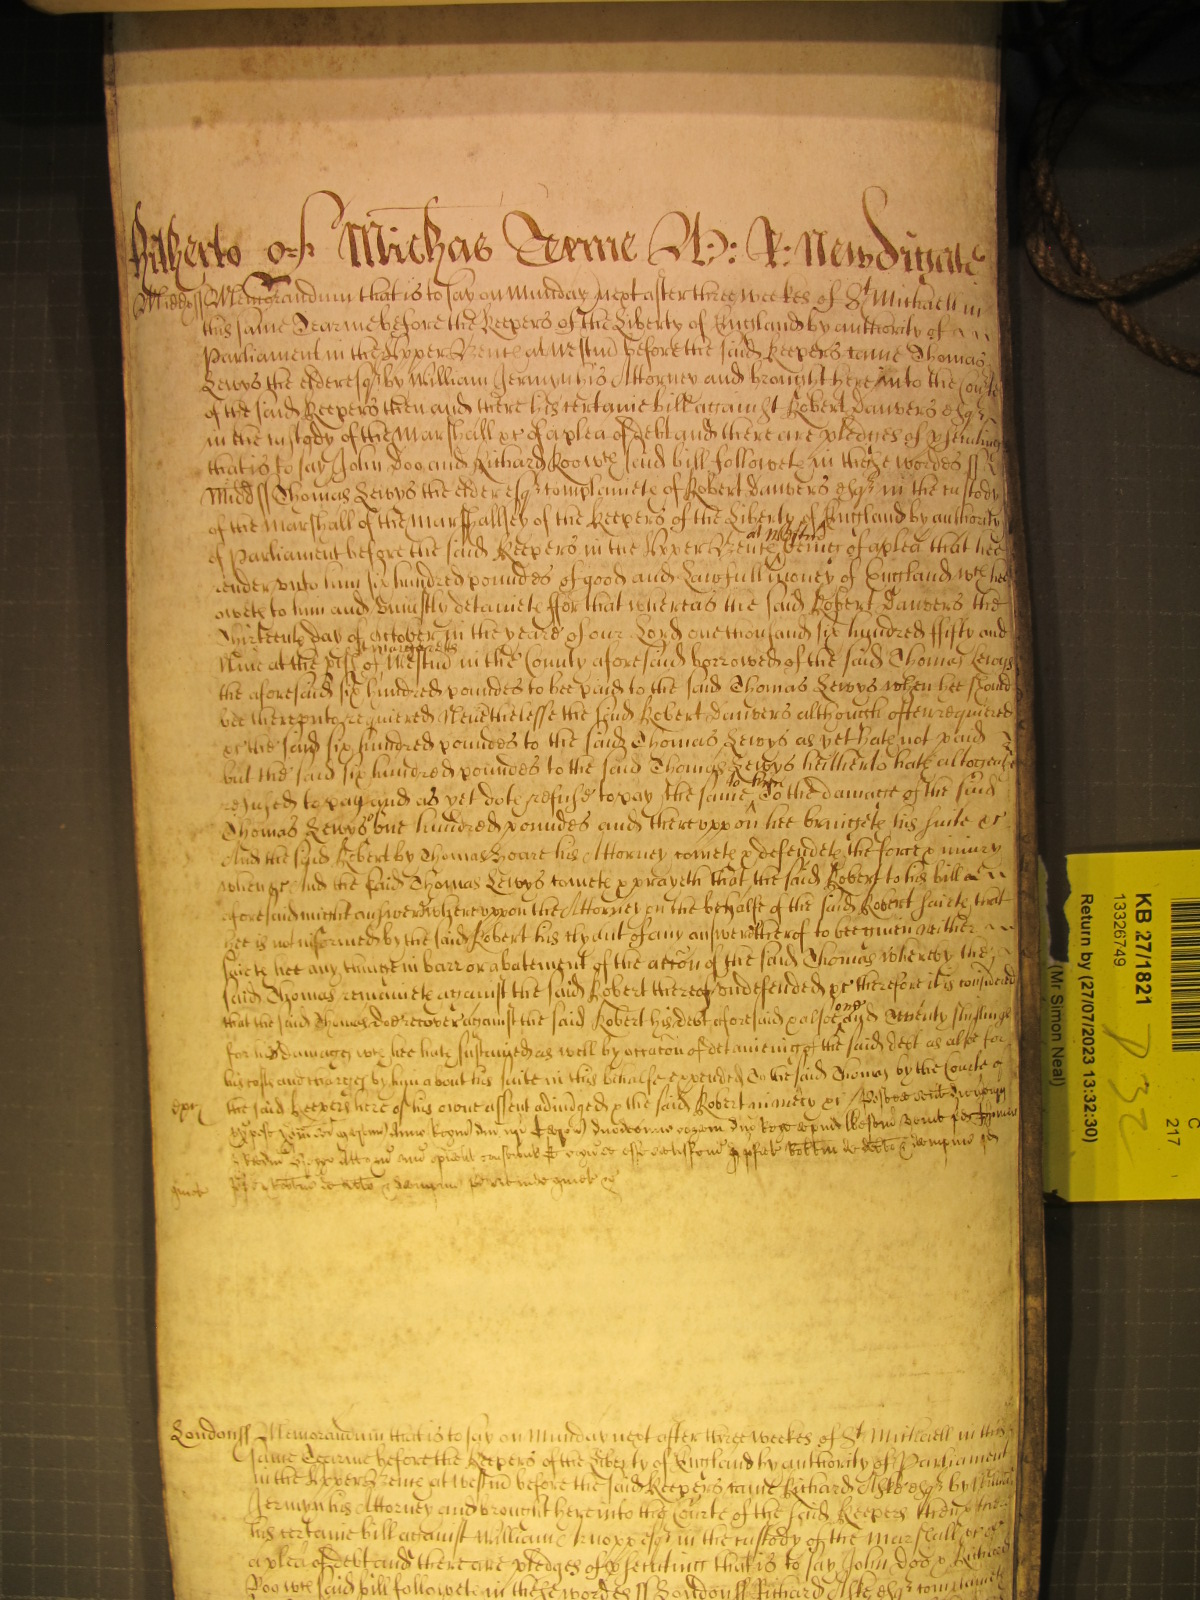 Hitherto of Michas Terme W: R: Newdigate
Middss Memorandum that is to say on Munday next after three weekes of St Michaell in
this same Tearme before the Keepers of the Liberty of England by authority of
Parliament in the Upper Bench at Westm before the said Keepers came Thomas
Lewys the elder esqr by William Jermyn his Attorney and brought here into the Courte
of the said Keepers then and there his certaine bill against Robert Danvers esqr
in the custody of the Marshall &c of a plea of debt and there are pledges of psecuting
that is to say John Doo and Richard Roo wch said bill followeth in theise wordes ss
Midd ss Thomas Lewys the elder esqr complaineth of Robert Danvers esqr in the custody
of the Marshall of the Marshallsey of the Keepers of the Liberty of England by authority
of Parliament before the said Keepers in the Upper Bench at Westm being of a plea that hee
render unto him six hundred poundes of good and Lawfull money of England wch hee
oweth to him and Uniustly detaineth ffor that whereas the said Robert Danvers the
Thirteenth day of October in the yeare of our Lord one thousand six hundred ffifty and
Nine at the pish of St Margaretts Westm in the County aforesaid borrowed of the said Thomas Lewys
the aforesaid six hundred poundes to bee paid to the said Thomas Lewys when hee should
bee thereunto requiered Nevthelesse the said Robert Danvers although often requiered
&c the said six hundred poundes to the said Thomas Lewys as yet hath not paid
but the said six hundred poundes to the said Thomas Lewys hitherto hath altogeather
refused to pay and as yet doth refuse to pay the same to him To the damage of the said
Thomas Lewys one hundred poundes and thereuppon hee bringeth his suite &c
And the said Robert by Thomas Hoare his Attorney cometh & defendeth the force & iniury
when &c And the said Thomas Lewys cometh & prayeth that the said Robert to his bill
aforesaid might answer Whereuppon the Attorney on the behalfe of the said Robert saieth that
hee is not informed by the said Robert his clyant of any answere thereof to bee given neither
saieth hee any thinge in barr or abatement of the accon of the said Thomas Whereby the
said Thomas remaineth against the said Robert thereof undefended &c therefore it is considered
that the said Thomas doe recover against the said Robert his debt aforesaid & alsoe one and Twenty shillings
for his damages wch hee hath sustained as well by occacon of detaineing of the said debt as alsoe for
his costs and charges by him about his suite in this behalfe expended To the said Thomas by the Courte of
the said Keepers here of his owne assent adiudged & the said Robert in mercy &c
Londonss Memorandum that is to say on Munday next after three weekes of St Michaell in this
same Tearme before the Keepers of the Liberty of England by authority of Parliament
in the Upper Bench at Westm before the said Keepers came Richard Aske esqr by William
Jermyn his Attorney and brought here into the Courte of the said Keepers then & there
his certaine bill against William Knopp esqr in the custody of the Marshall &c of
a plea of debt and there are pledges of psecuting that is to say John Doo & Richard
Roo wch said bill followeth in theise wordes ss London ss Richard Aske esqr complaineth
KB 27/1821
13326749
Return by (27/07/2023 13:32:30)
(Mr Simon Neal)
C
217